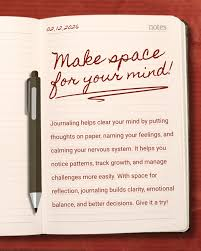 02.12.2026
notes
Make space
for your mind!
Journaling helps clear your mind by putting
thoughts on paper, naming your feelings, and
calming your nervous system. It helps you
notice patterns, track growth, and manage
challenges more easily. With space for
reflection, journaling builds clarity, emotional
balance, and better decisions. Give it a try!